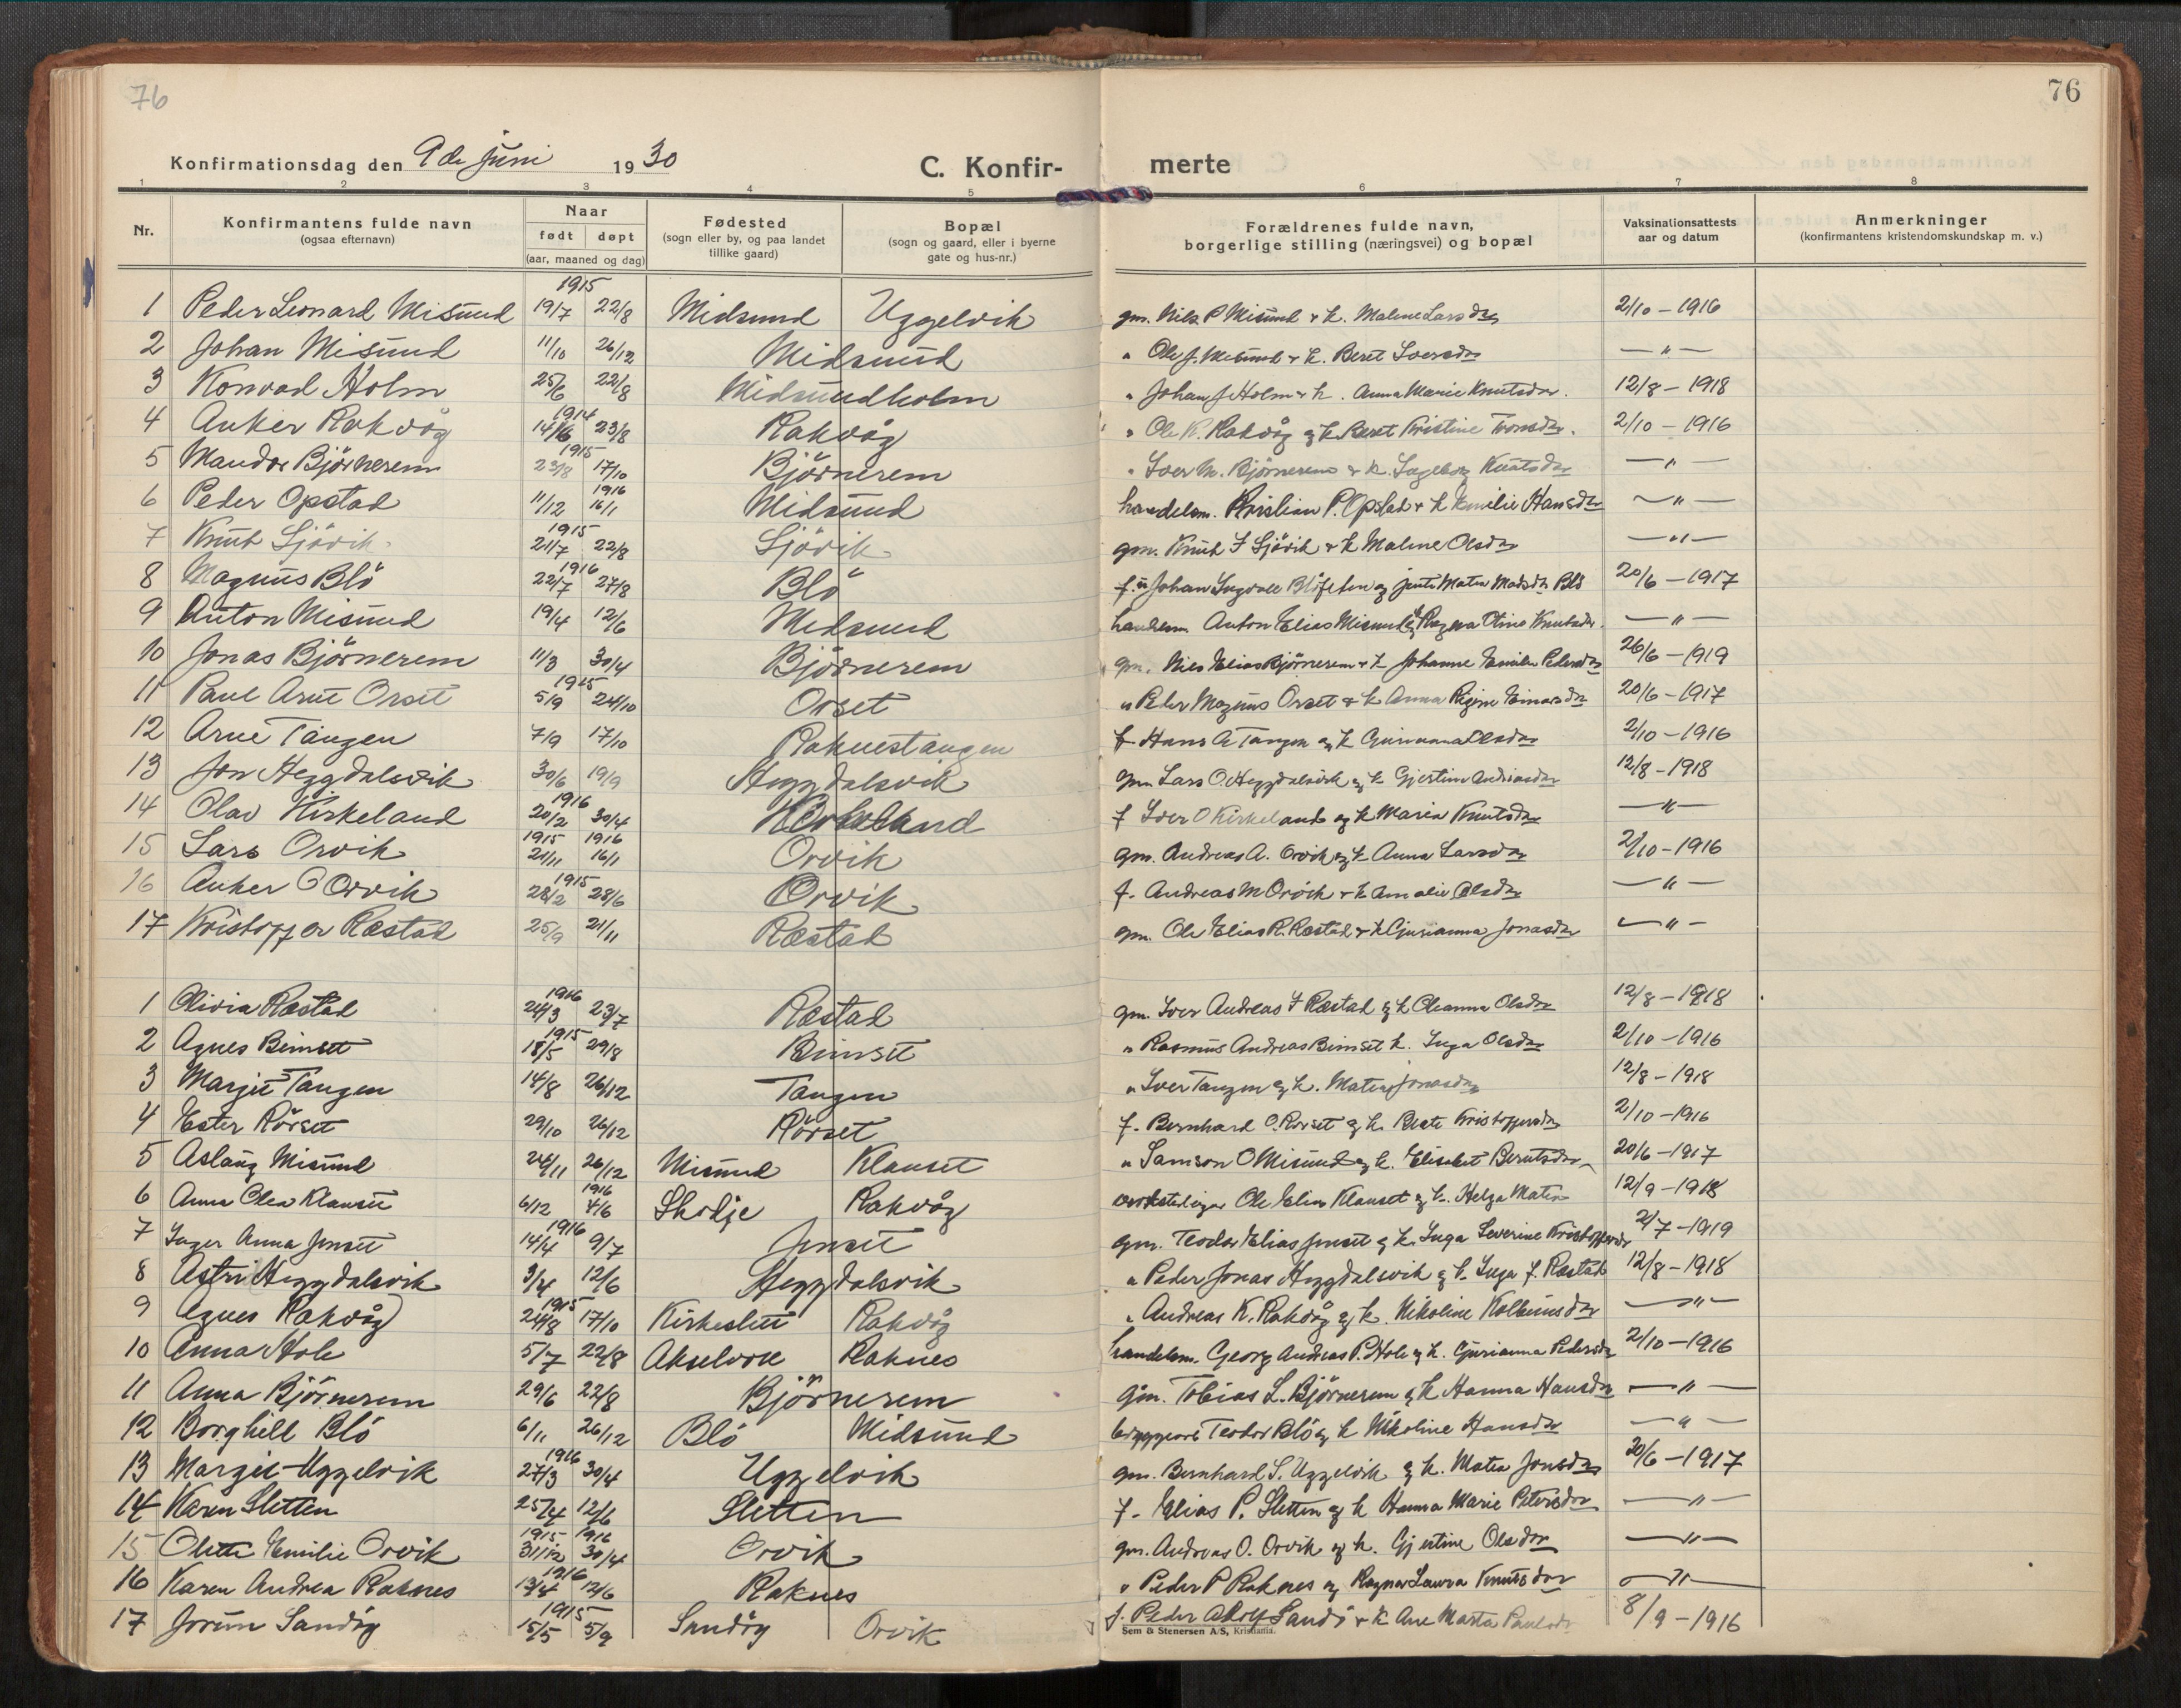 76
76
Konfirmationsdag den 9de juni 1930
C. Konfir-
merte
1 2 3 4 5 6 7 8
Nr.
Konfirmantens fulde navn
(ogsaa efternavn)
Naar
født døpt
(aar, maaned og dag)
Fødested
(sogn eller by, og paa landet
tillike gaard)
Bopæl
(sogn og gaard, eller i byerne
gate og hus-nr.)
Forældrenes fulde navn,
borgerlige stilling (næringsvei) og bopæl
Vaksinationsattests
aar og datum
Anmerkninger
(konfirmantens kristendomskundskap m. v.)
1915
1 Peder Leonard Misund 19/7 22/8 Midsund Uggelvik gm. Nils P Misund & k. Malene Larsdr 2/10 - 1916
2 Johan Misund 11/10 26/12 Midsund " Ole J. Misund & k. Beret Iversdr — " —
3 Konrad Holm 25/6 22/8 Midsundholm " Johan J Holm & k. Anna Marie Knutsdr. 12/8 - 1918
1914
4 Anker Rakvåg 14/6 23/8 Rakvåg " Ole K. Rakvåg og k Beret Kristine Tronsdr. 2/10 - 1916
1915
5 Mandor Björnerem 23/8 17/10 Björnerem " Iver M. Björnerem & k. Ingeborg Knutsdr — " —
1916
6 Peder Opstad 11/12 16/1 Midsund handelsm. Kristian P. Opstad & k Emilie Hansdr — " —
1915
7 Knut Sjövik 21/7 22/8 Sjövik gm. Knut I Sjövik & k Malene Olsdr — " —
1916
8 Magnus Blö 22/7 27/8 Blö Johan Ingvald og Matea Madsdr Blö 20/6 - 1917
9 Anton Misund 19/4 12/6 Midsund handelsm Anton Elias Misund og Ragna Oline Knutsdr. — " —
10 Jonas Björnerem 11/3 30/4 Björnerem gm. Nils Elias Björnerem & k Johanne Emilie Pedersdr 26/6 - 1919
1915
11 Paul Arne Orset 5/9 24/10 Orset " Peder Magnus Orset & k Anna Regine Einarsdr 20/6 - 1917
12 Arne Tangen 7/9 17/10 Raknestangen f Hans A Tangen og k Gurianna Olsdr 2/10 - 1916
13 Jon Heggdalsvik 30/6 19/9 Heggdalsvik gm Lars O. Heggdalsvik og k Gjertine Andreasdr 12/8 - 1918
1916
14 Olav Kirkeland 20/2 30/4 Kirkeland f Iver O Kirkeland og k Maria Knutsdr — " —
1915 1916
15 Lars Orvik 21/11 16/1 Orvik gm. Andreas A. Orvik og k Anna Larsdr 2/10 - 1916
1915
16 Anker O Orvik 28/2 28/6 Orvik f. Andreas M Orvik & k Amalie Olsdr — " —
17 Kristoffer Ræstad 25/9 21/11 Ræstad gm. Ole Elias R. Ræstad & k Gurianna Jonasdr — " —
1916
1 Olivia Ræstad 24/3 23/7 Ræstad gm. Iver Andreas I Ræstad og k Oleanna Olsdr 12/8 - 1918
1915
2 Agnes Beinset 18/5 29/8 Beinset " Rasmus Andreas Beinset k. Inga Olsdr 2/10 - 1916
3 Margit Tangen 14/8 26/12 Tangen " Iver Tangen og k. Matea Jonasdr 12/8 - 1918
4 Ester Rörset 29/10 26/12 Rörset f. Bernhard O. Rörset og k. Beate Kristoffersdr 2/10 - 1916
5 Aslaug Misund 24/11 26/12 Misund Klauset " Samson O Misund og k. Elisebet Berntsdr 20/6 - 1917
1916
6 Anna Olea Klauset 6/12 4/6 Skodje Rakvåg Ole Elias Klauset og k. Helga Matea 12/9 - 1918
1916
7 Inger Anna Jenset 14/4 9/7 Jenset gm. Teodor Elias Jenset og k. Inga Severine Kristoffersdr 2/7 - 1919
8 Astri Heggdalsvik 3/4 12/6 Heggdalsvik " Peder Jonas Heggdalsvik og k. Inga J. Ræstad 12/8 - 1918
1915
9 Agnes Rakvåg 24/8 17/10 Kirkeslett Rakvåg " Andreas K. Rakvåg og k. Nikoline Kolbeinsdr — " —
10 Anna Hole 5/7 22/8 Akselvoll Raknes handelsm. Georg Andreas P. Hole og k. Gurianna Pedersdr 2/10 - 1916
11 Anna Björnerem 29/6 22/8 Björnerem gm. Tobias L. Björnerem og k Hanna Hansdr — " —
12 Borghill Blö 6/11 26/12 Blö Midsund Teodor Blö og k Nikoline Hansdr — " —
1916
13 Margit Uggelvik 27/3 30/4 Uggelvik gm. Bernhard S. Uggelvik og k. Matea Jonsdr 20/6 - 1917
14 Karen Sletten 25/4 12/6 Sletten f. Elias P. Sletten og k Hanna Marie Petersdr — " —
1915 1916
15 Olette Emilie Orvik 31/12 30/4 Orvik gm. Andreas O. Orvik og k. Gjertine Olsdr — " —
1916
16 Karen Andrea Raknes 13/4 12/6 Raknes " Peder P Raknes og Ragna Laura Knutsdr — " —
1915
17 Jorun Sandöy 15/5 5/9 Sandöy Orvik f. Peder Adolf Sandö & k Ane Marta Paulsdr 8/9 - 1916
Sem & Stenersen A/S, Kristiania.